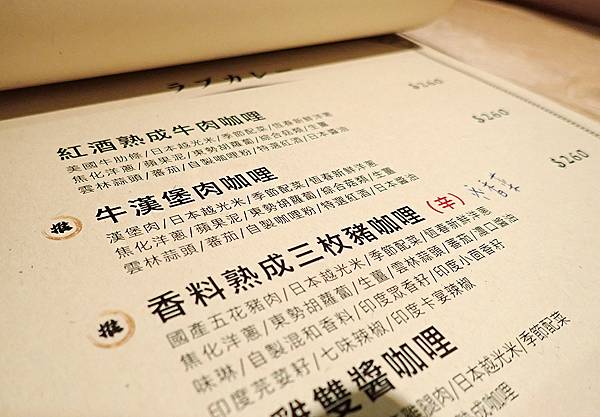 ラブカレー
紅酒熟成牛肉咖哩 $260
美國牛肋條/日本越光米/季節配菜/恆春新鮮洋蔥
焦化洋蔥/蘋果泥/東勢胡蘿蔔/綜合菇類/生薑
雲林蒜頭/蕃茄/自製咖哩粉/特選紅酒/日本醬油
推 牛漢堡肉咖哩 $260
漢堡肉/日本越光米/季節配菜/恆春新鮮洋蔥
焦化洋蔥/蘋果泥/東勢胡蘿蔔/綜合菇類/生薑
雲林蒜頭/蕃茄/自製咖哩粉/特選紅酒/日本醬油
推 香料熟成三枚豬咖哩 (辛) x香菜 $260
國產五花豬肉/日本越光米/季節配菜/恆春新鮮洋蔥
焦化洋蔥/東勢胡蘿蔔/生薑/雲林蒜頭/蕃茄/濃口醬油
味琳/自製混和香料/印度眾香籽/印度小茴香籽
印度芫荽籽/七味辣椒/印度卡宴辣椒
雙醬咖哩
腿肉/日本越光米/季節配菜